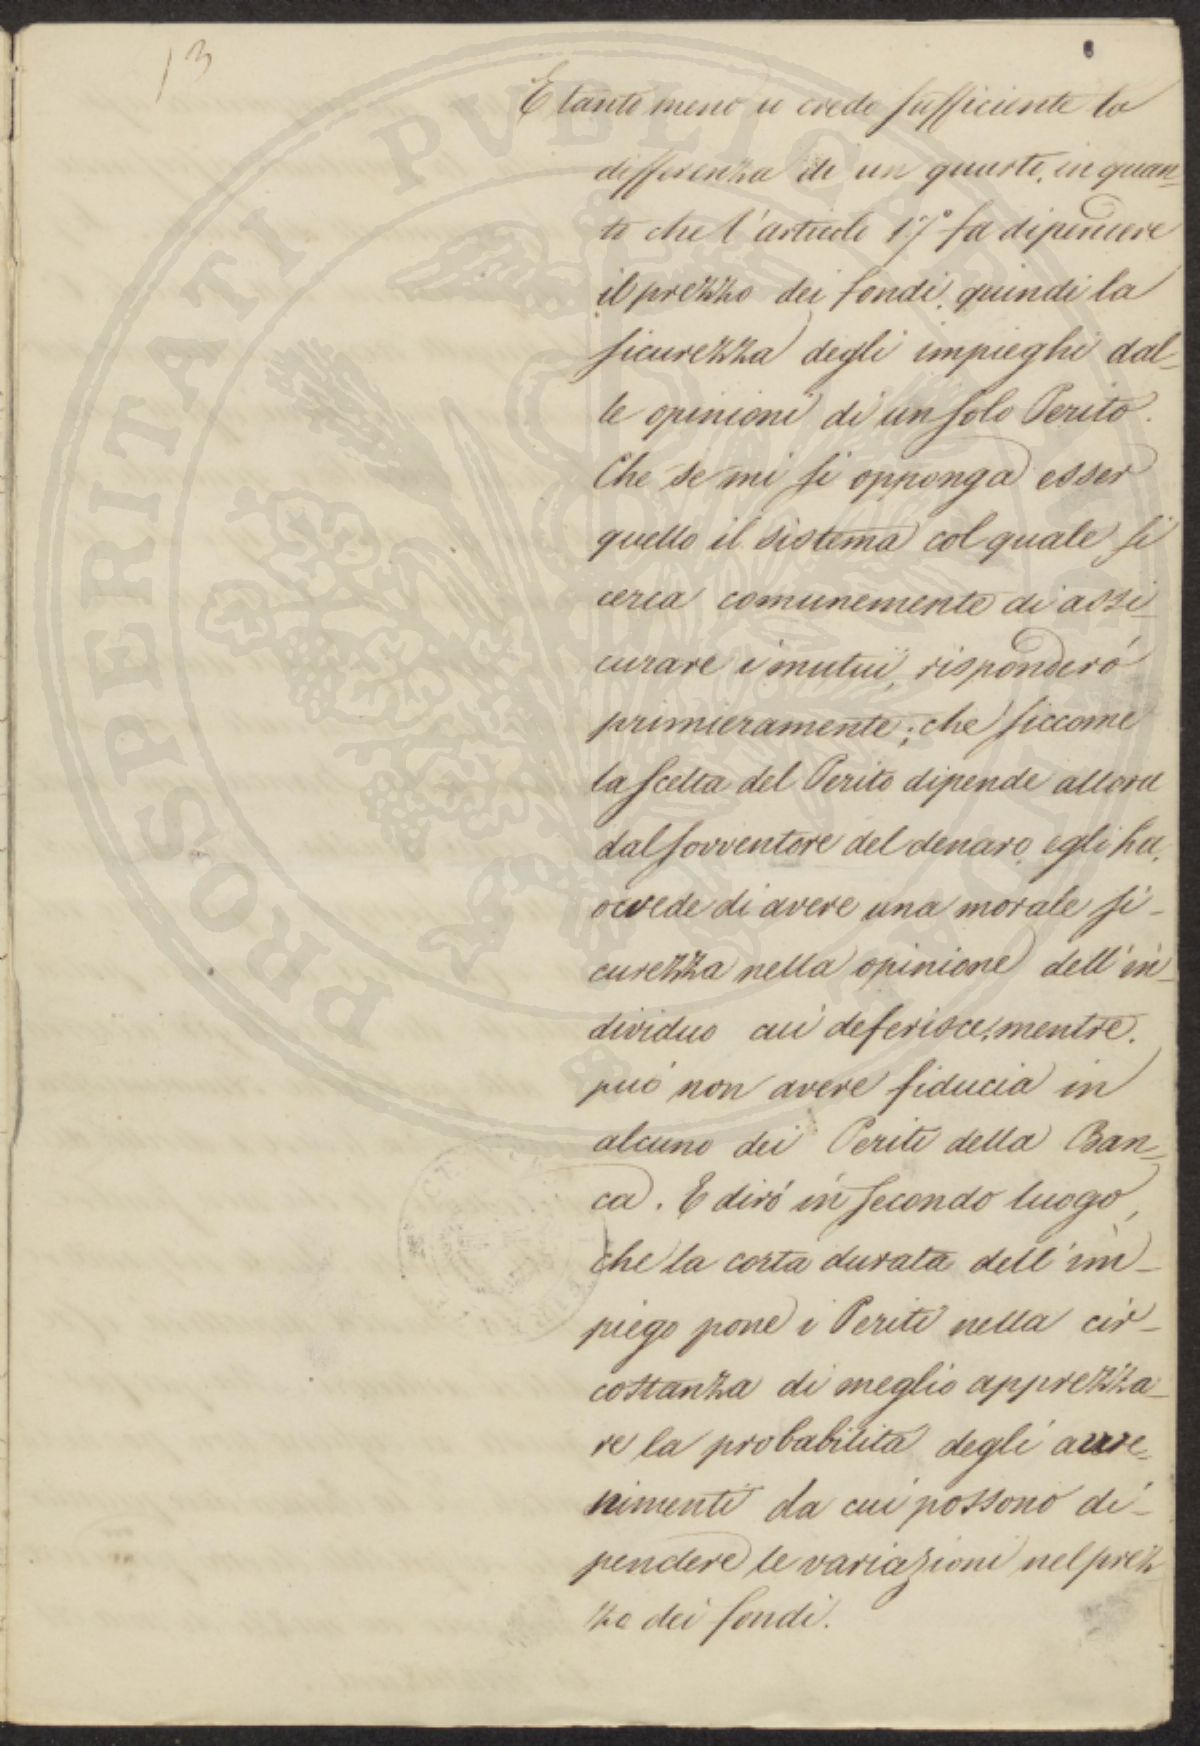 13
E tanto meno si crede sufficiente la
differenza di un quarto, in quan-
to che l'articolo 17° fa dipendere
il prezzo dei fondi, quindi la
sicurezza degli impieghi dal-
le opinioni di un solo Perito.
Che se mi si opponga esser
quello il sistema col quale si
cerca comunemente di assi-
curare i mutui, risponderó
primieramente; che siccome
la scelta del Perito dipende allora
dal sovventore del denaro, egli ha,
o crede di avere una morale si-
curezza nella opinione dell'in-
dividuo cui deferisce, mentre
puó non avere fiducia in
alcuno dei Periti della Ban-
ca. E diró in secondo luogo,
che la corta durata dell'im-
piego pone i Periti nella cir-
costanza di meglio apprezza-
re la probabilità degli avve-
nimenti da cui possono di-
pendere le variazioni nel prez-
zo dei fondi.
PROSPERITATI PUBLICAE